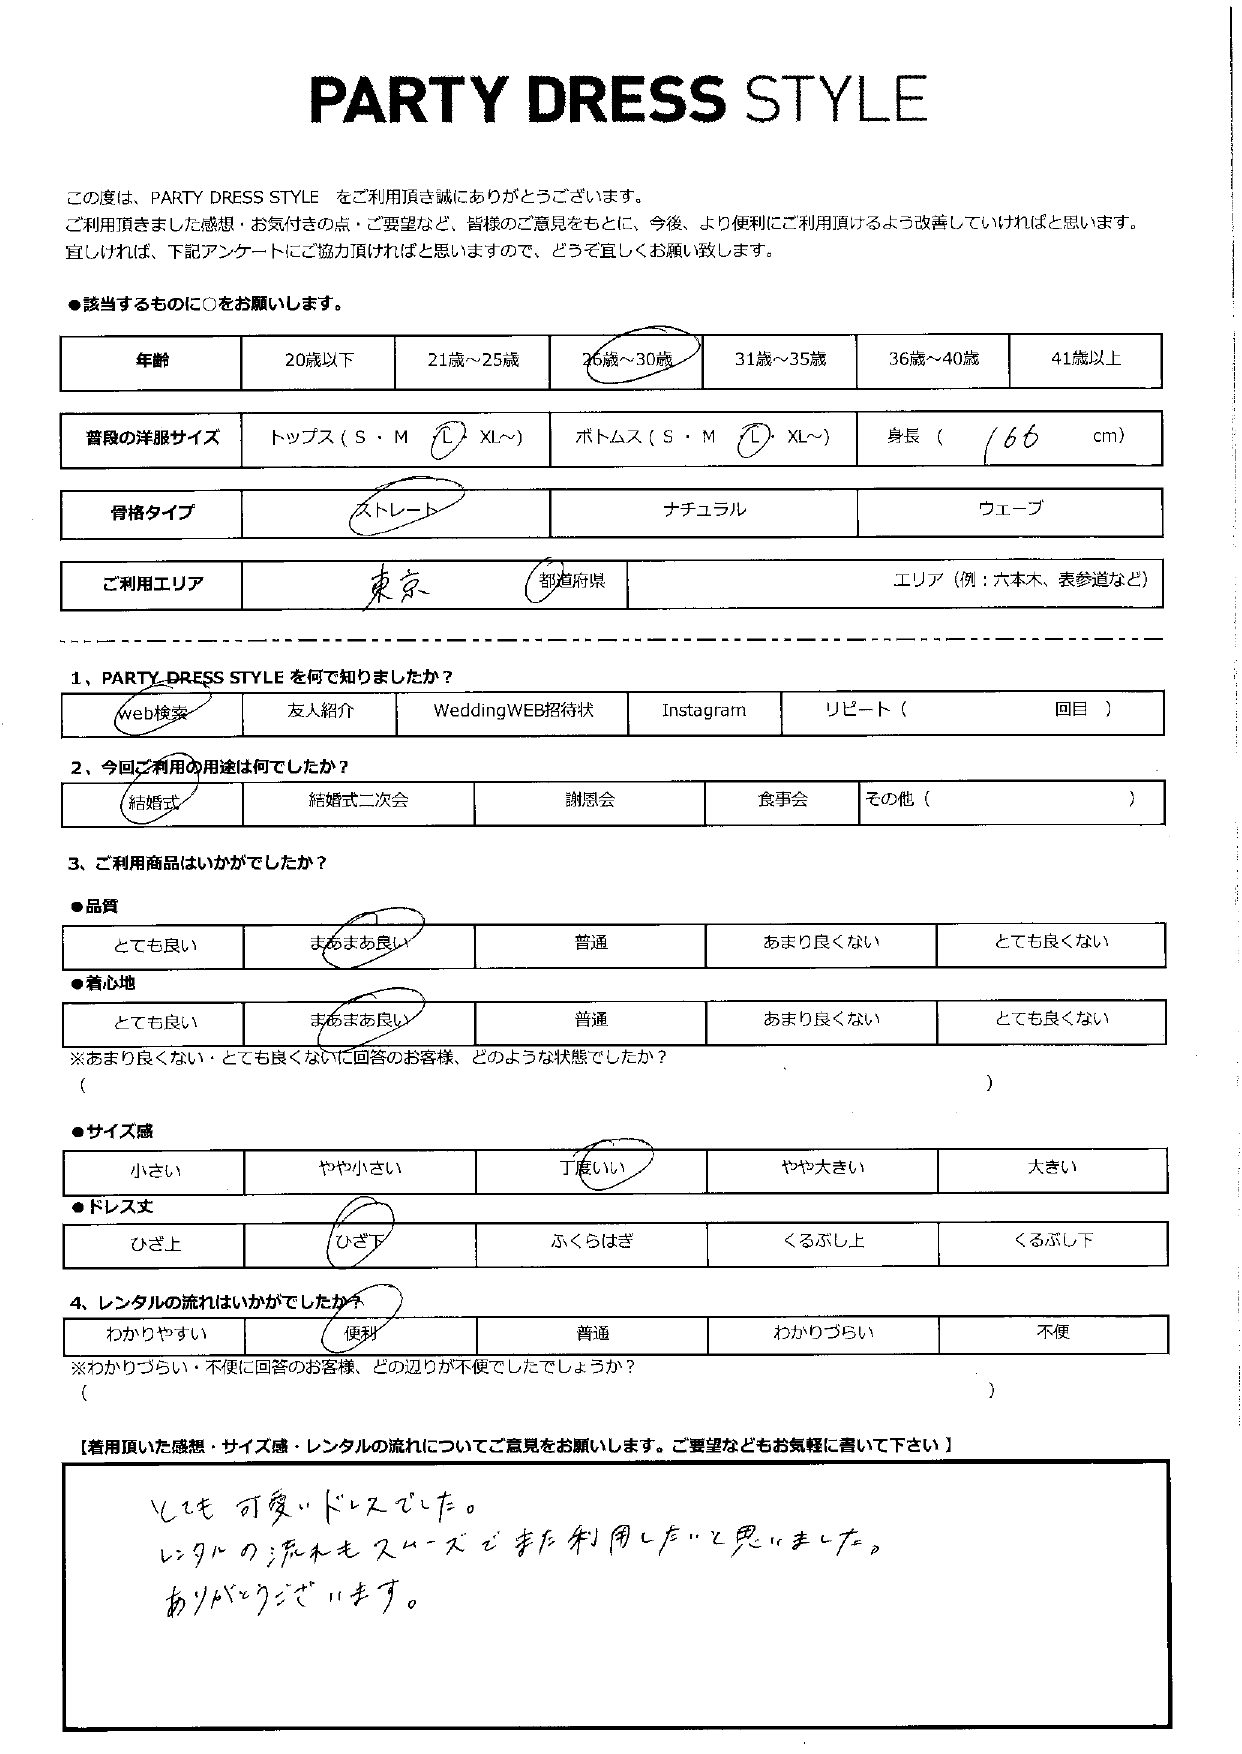 PARTY DRESS STYLE
この度は、PARTY DRESS STYLE をご利用頂き誠にありがとうございます。
ご利用頂きました感想・お気付きの点・ご要望など、皆様のご意見をもとに、今後、より便利にご利用頂けるよう改善していければと思います。
宜しければ、下記アンケートにご協力頂ければと思いますので、どうぞ宜しくお願い致します。
●該当するものに○をお願いします。
年齢 20歳以下 21歳～25歳 26歳～30歳 31歳～35歳 36歳～40歳 41歳以上
普段の洋服サイズ トップス ( S ・ M L ・ XL～) ボトムス ( S ・ M L ・ XL～) 身長 ( 166 cm)
骨格タイプ ストレート ナチュラル ウェーブ
ご利用エリア 東京 都道府県 エリア（例：六本木、表参道など）
1、PARTY DRESS STYLE を何で知りましたか？
web検索 友人紹介 WeddingWEB招待状 Instagram リピート（ 回目 ）
2、今回ご利用の用途は何でしたか？
結婚式 結婚式二次会 謝恩会 食事会 その他（ ）
3、ご利用商品はいかがでしたか？
●品質
とても良い まあまあ良い 普通 あまり良くない とても良くない
●着心地
とても良い まあまあ良い 普通 あまり良くない とても良くない
※あまり良くない・とても良くないに回答のお客様、どのような状態でしたか？
（ ）
●サイズ感
小さい やや小さい 丁度いい やや大きい 大きい
●ドレス丈
ひざ上 ひざ下 ふくらはぎ くるぶし上 くるぶし下
4、レンタルの流れはいかがでしたか？
わかりやすい 便利 普通 わかりづらい 不便
※わかりづらい・不便に回答のお客様、どの辺りが不便でしたでしょうか？
（ ）
【着用頂いた感想・サイズ感・レンタルの流れについてご意見をお願いします。ご要望などもお気軽に書いて下さい】
とても可愛いドレスでした。
レンタルの流れもスムーズでまた利用したいと思いました。
ありがとうございます。